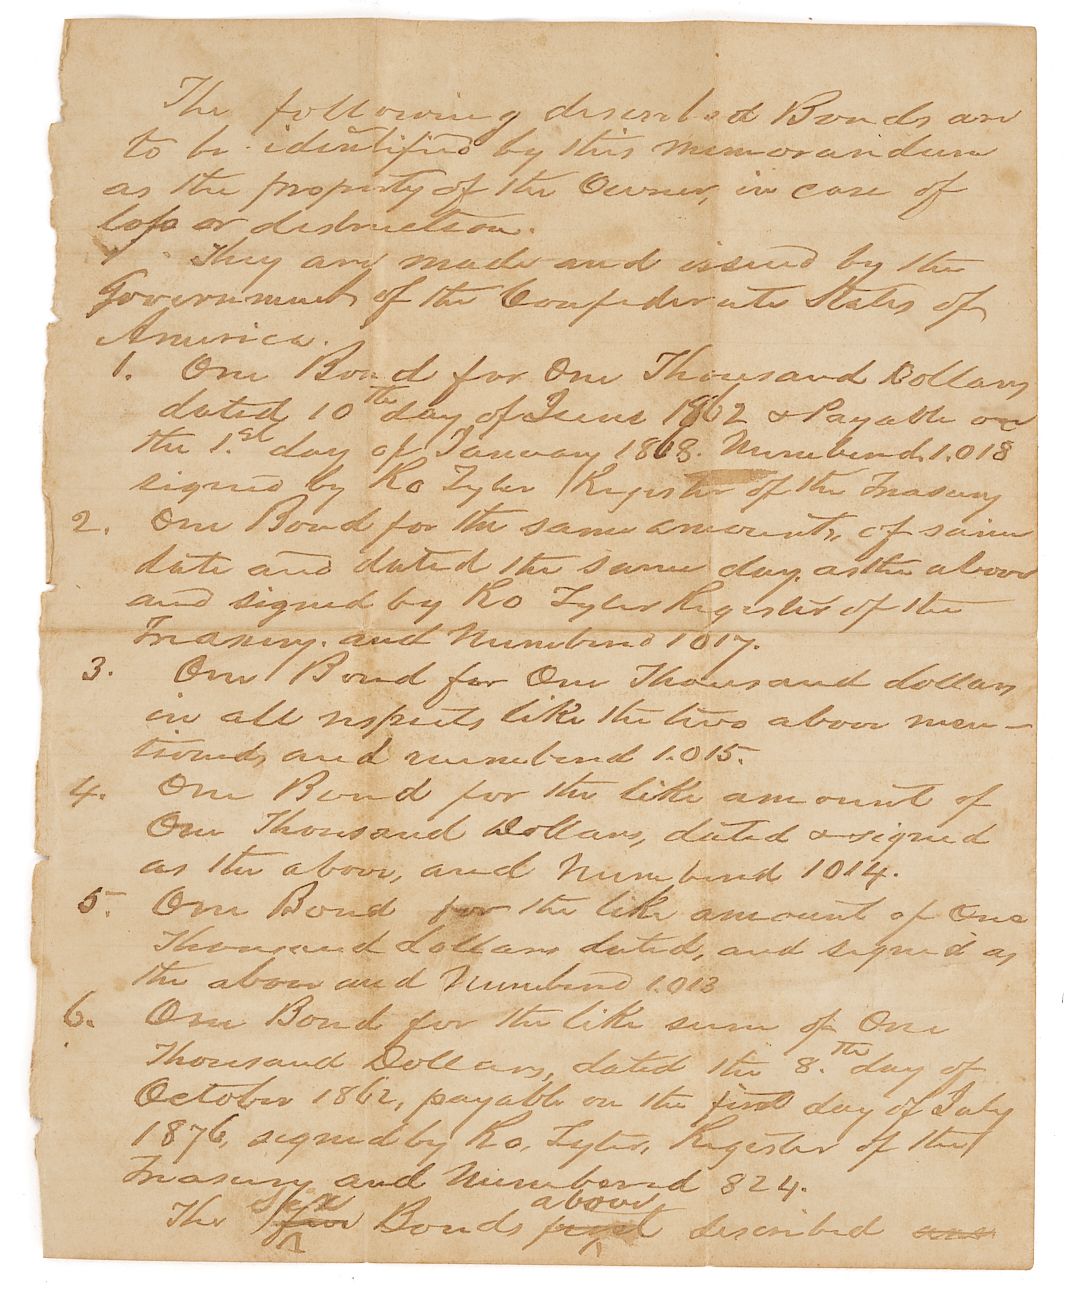 The following described Bonds are
to be identified by this memorandum
as the property of the Owner, in case of
loss or destruction.
They are made and issued by the
Government of the Confederate States of
America.
1. One Bond for One Thousand Dollars
dated 10th day of June 1862 & Payable on
the 1.st day of January 1868. Numbered 1.018
signed by Ro Tyler Register of the Treasury
2. One Bond for the same amount, of same
date and dated the same day as the above
and signed by Ro Tyler Register of the
Treasury. and Numbered 1017.
3. One Bond for One Thousand dollars
in all respects like the two above men-
tioned, and numbered 1.015.
4. One Bond for the like amount of
One Thousand Dollars, dated & signed
as the above, and Numbered 1014.
5. One Bond for the like amount of One
Thousand dollars dated, and signed as
the above and Numbered 1.013
6. One Bond for the like sum of One
Thousand Dollars, dated the 8.th day of
October 1862, payable on the first day of July
1876, signed by Ro. Tyler, Register of the
Treasury and Numbered 824.
six above
The five Bonds first described are